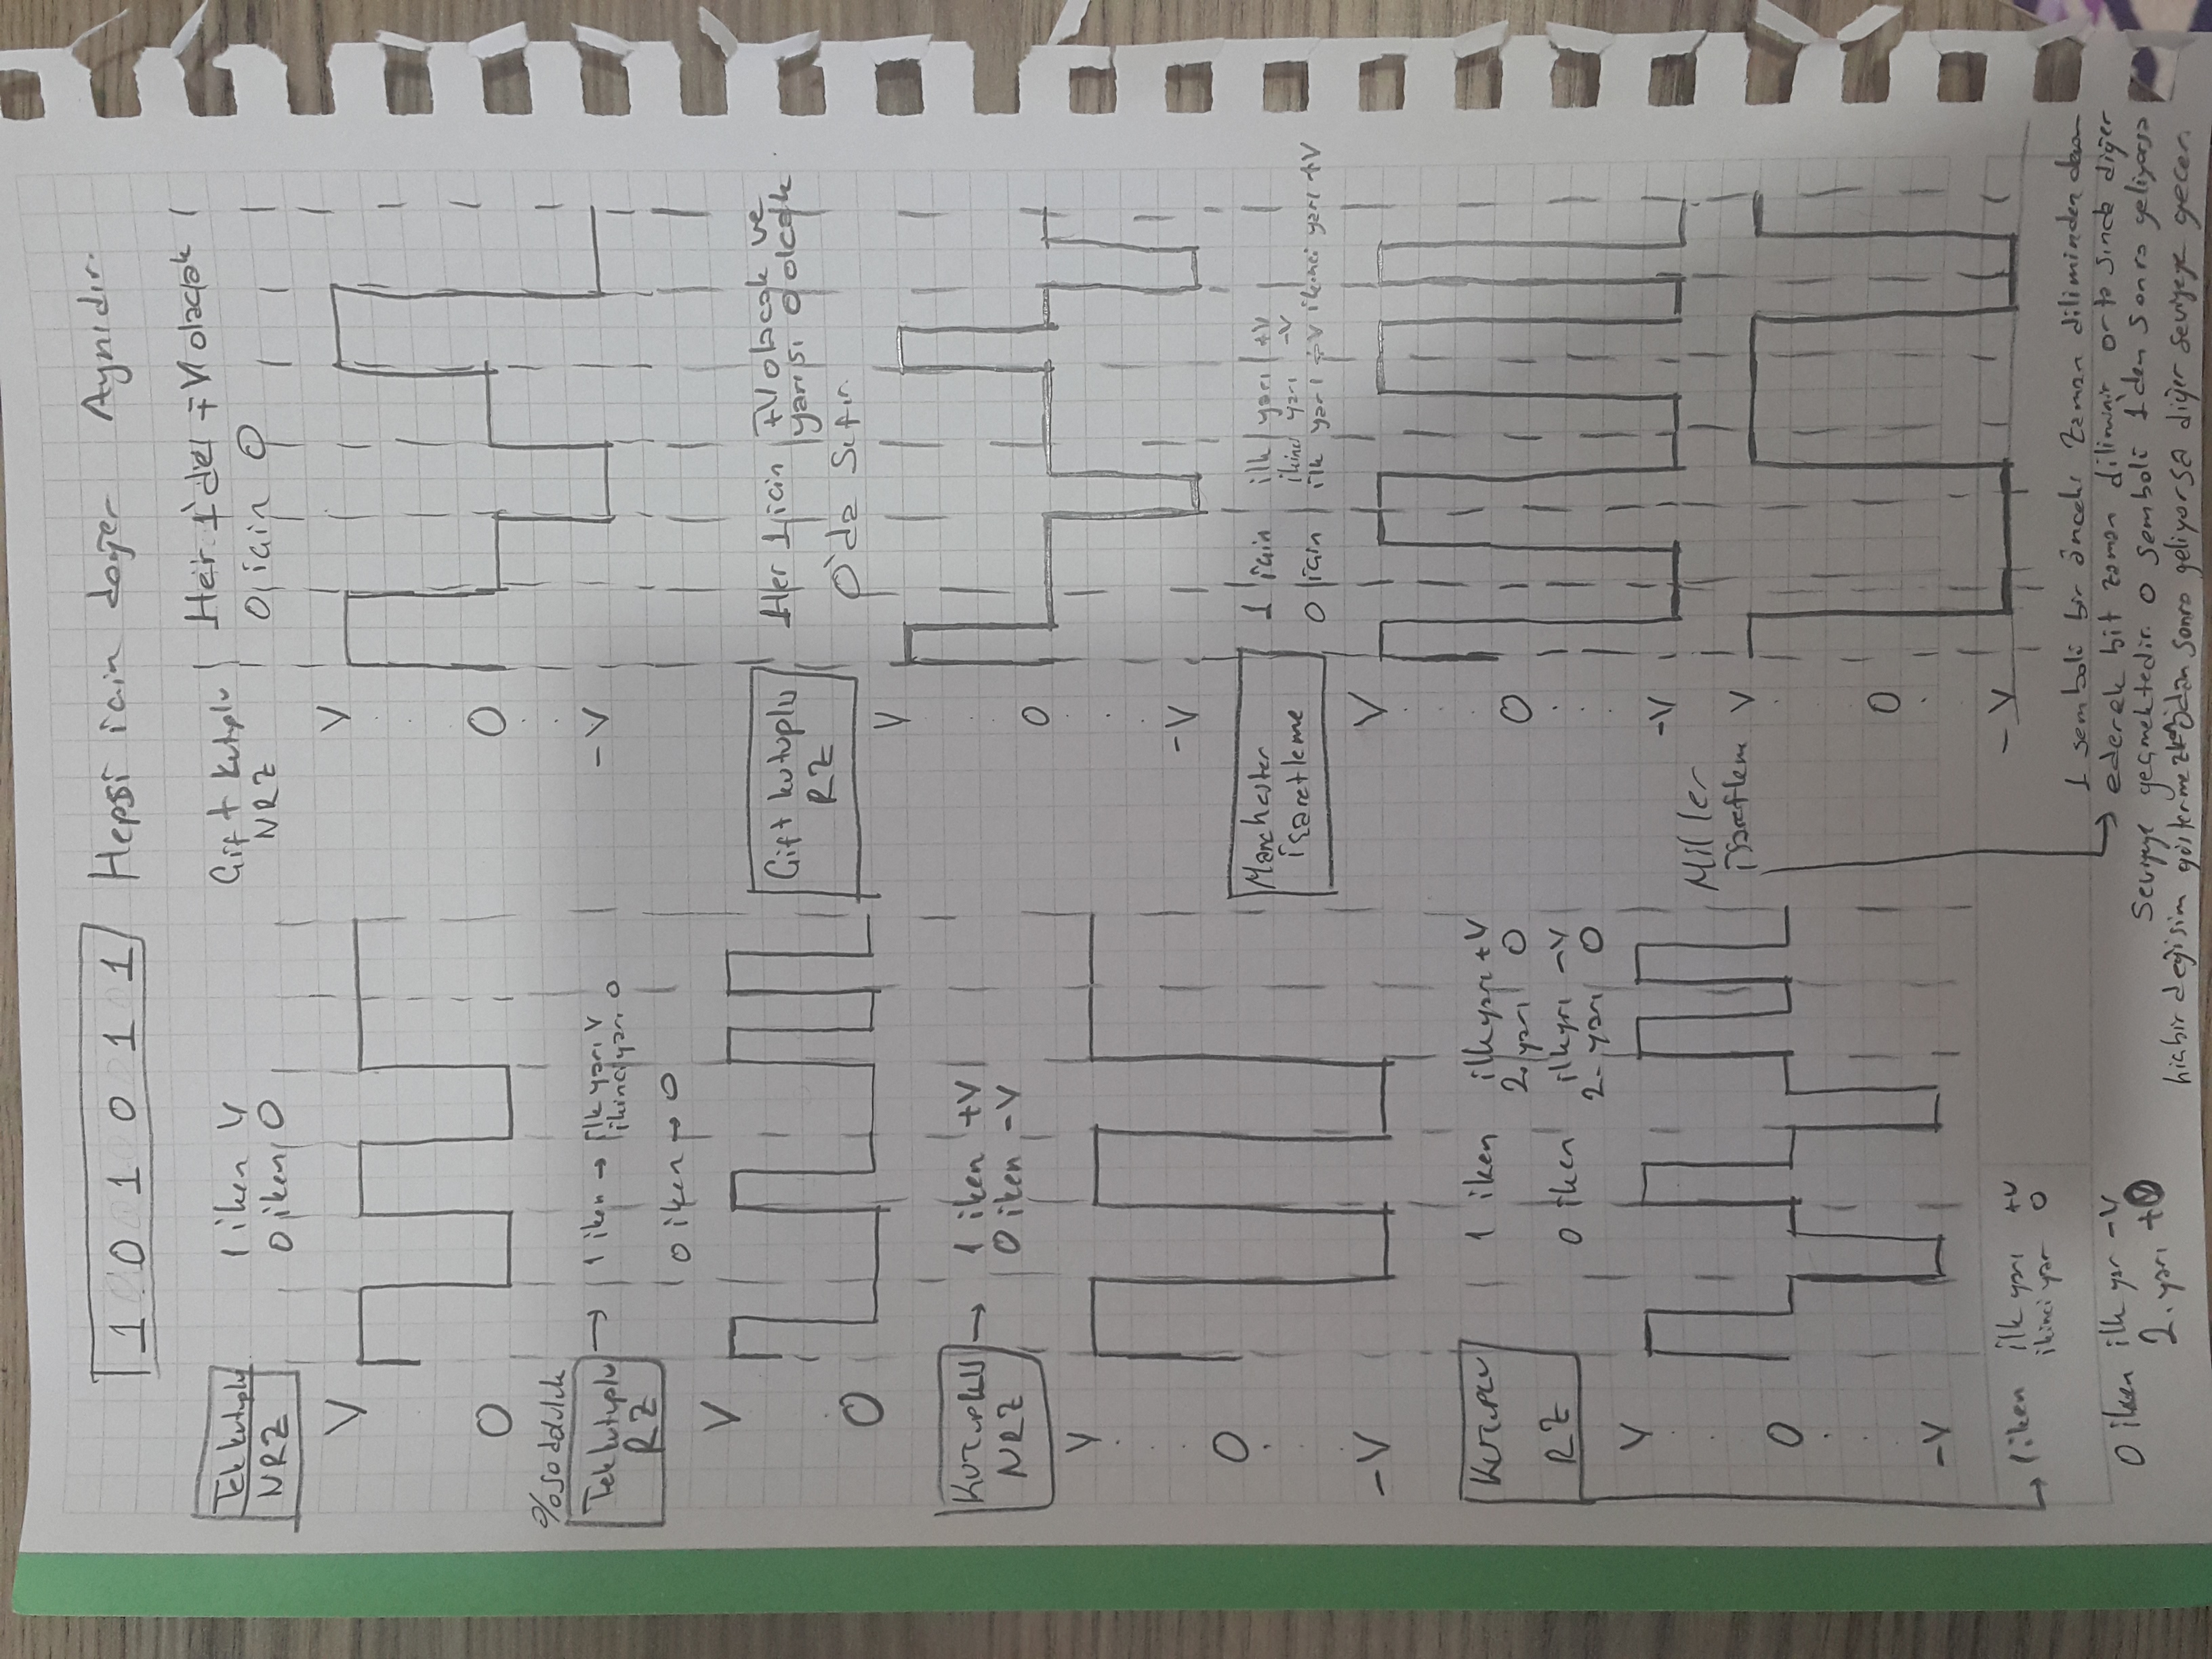 1 0 1 0 1 1 Hepsi için değer Aynıdır.
Tek kutuplu
NRZ
1 iken V
0 iken 0
V
0
%50 doluluk
Tek kutuplu
RZ
→ 1 iken → ilk yarı V
ikinci yarı 0
0 iken → 0
V
0
Kutuplu
NRZ
→ 1 iken +V
0 iken -V
V
0
-V
Kutuplu
RZ
1 iken ilk yarı +V
2. yarı 0
0 iken ilk yrı -V
2. yarı 0
V
0
-V
1 iken ilk yarı +V
ikinci yar 0
0 iken ilk yar -V
2. yarı +0
Çift kutuplu
NRZ
Her 1'de ∓V olacak
0 için 0
V
0
-V
Çift kutuplu
RZ
Her 1 için ∓V olacak ve
yarısı 0 olcak
0'da sıfır.
V
0
-V
Manchester
işaretleme
1 için ilk yarı +V
ikinci yarı -V
0 için ilk yarı -V ikinci yarı +V
V
0
-V
Miller
işaretleme
V
0
-V
1 sembolü bir önceki zaman diliminden devam
ederek bit zaman diliminin ortasında diğer
seviyeye geçmektedir. 0 sembolü 1'den sonra geliyorsa
hiçbir değişim göstermezken 0dan sonra geliyorsa diğer seviyeye geçer.